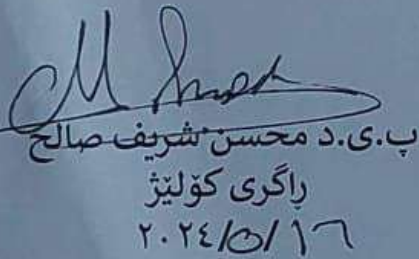 پ.ی.د محسن شریف صالح
راگری کۆلێژ
٢٠٢٤/٥/١٦